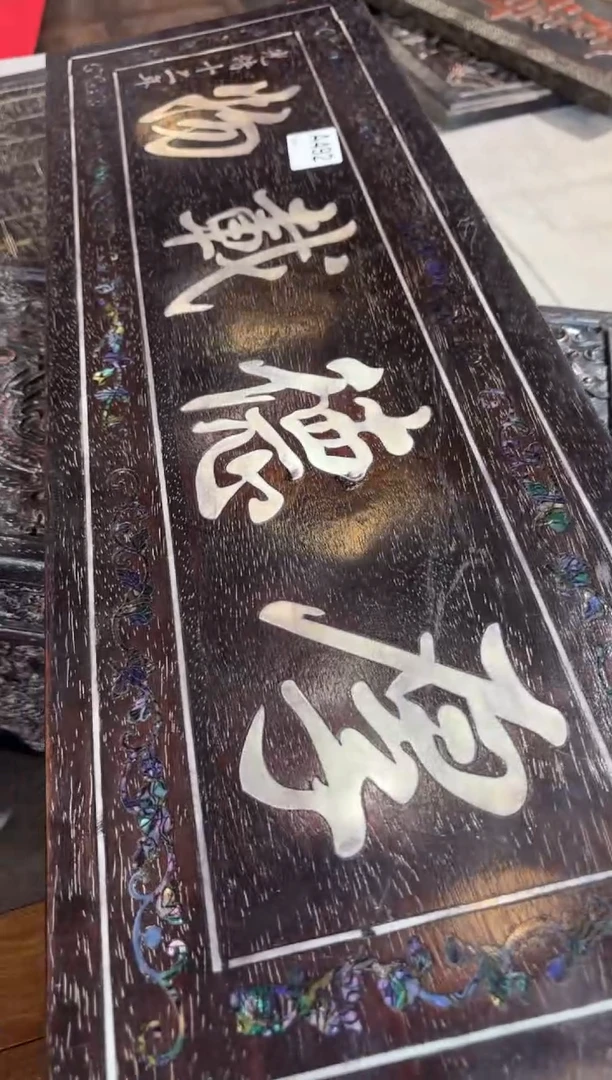 厚德載物
光緒十二年
A492